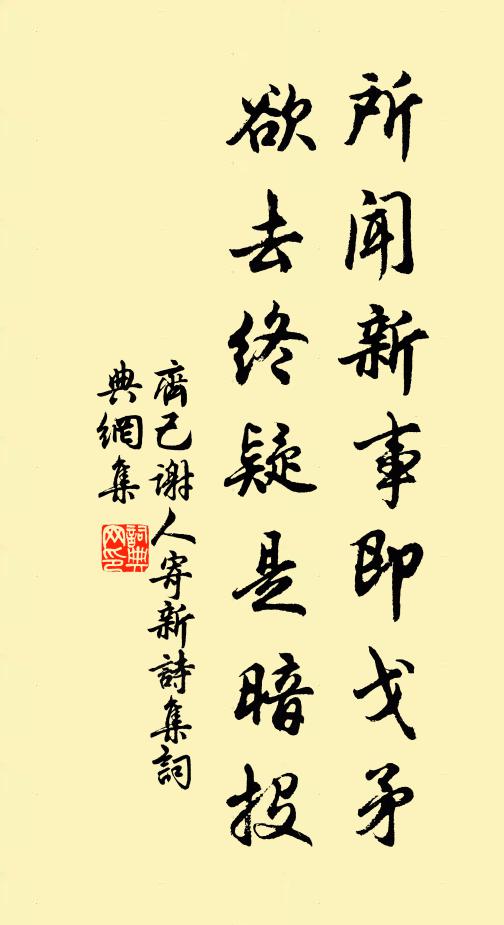 所聞新事即戈矛
欲去終疑是暗投
齊己謝人寄新詩集詞
典網集
詞典
网印